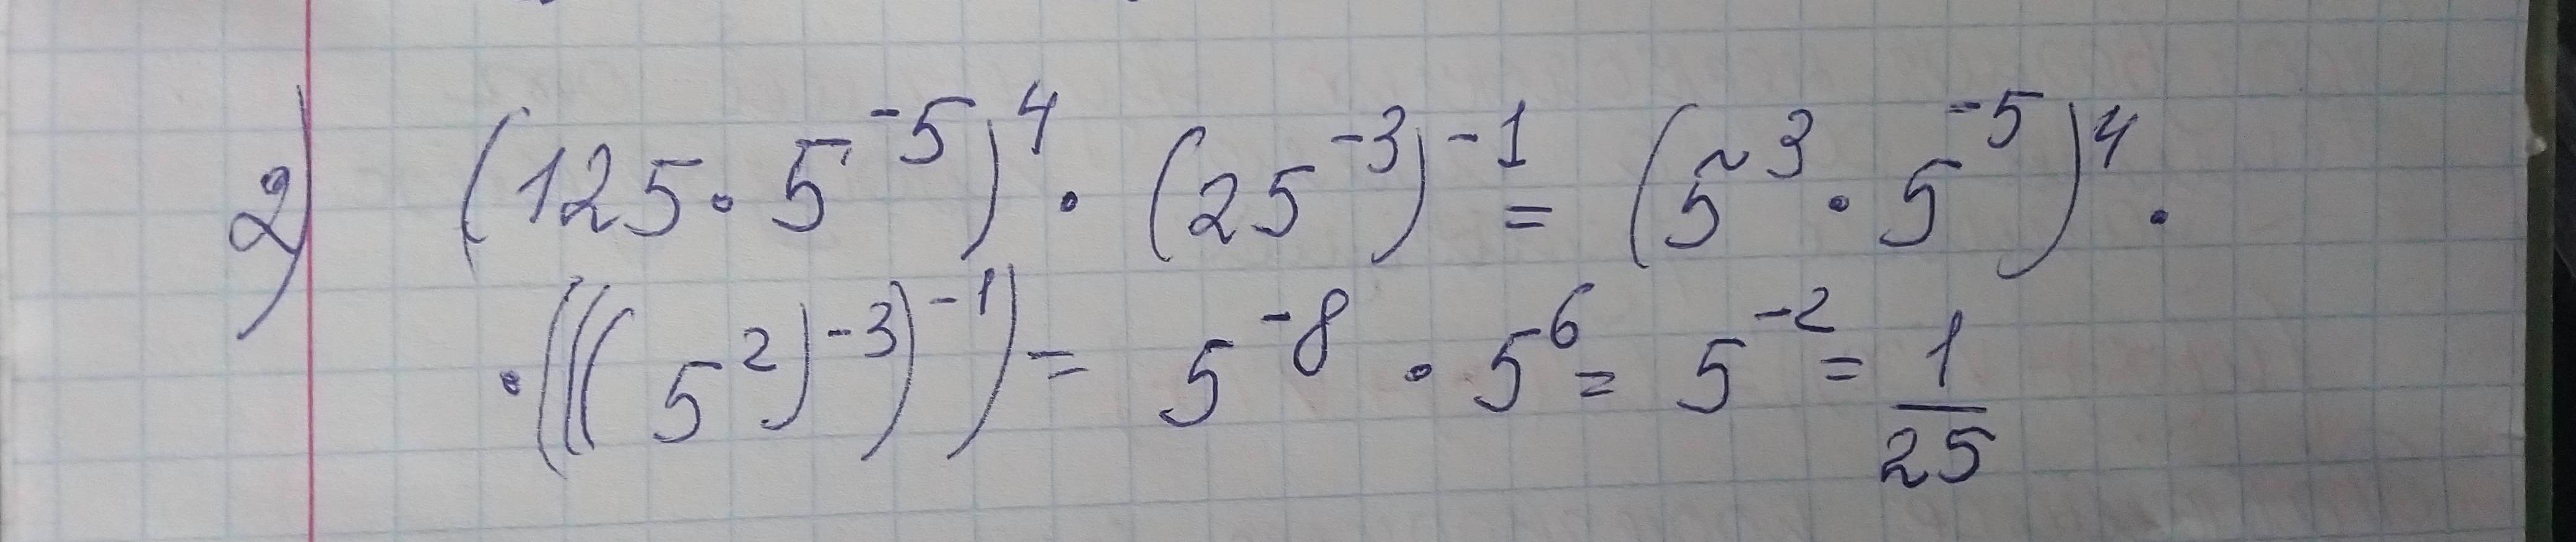 2) (125 · 5⁻⁵)⁴ · (25⁻³)⁻¹ = (5³ · 5⁻⁵)⁴ ·
· (((5²)⁻³)⁻¹) = 5⁻⁸ · 5⁶ = 5⁻² = 1/25